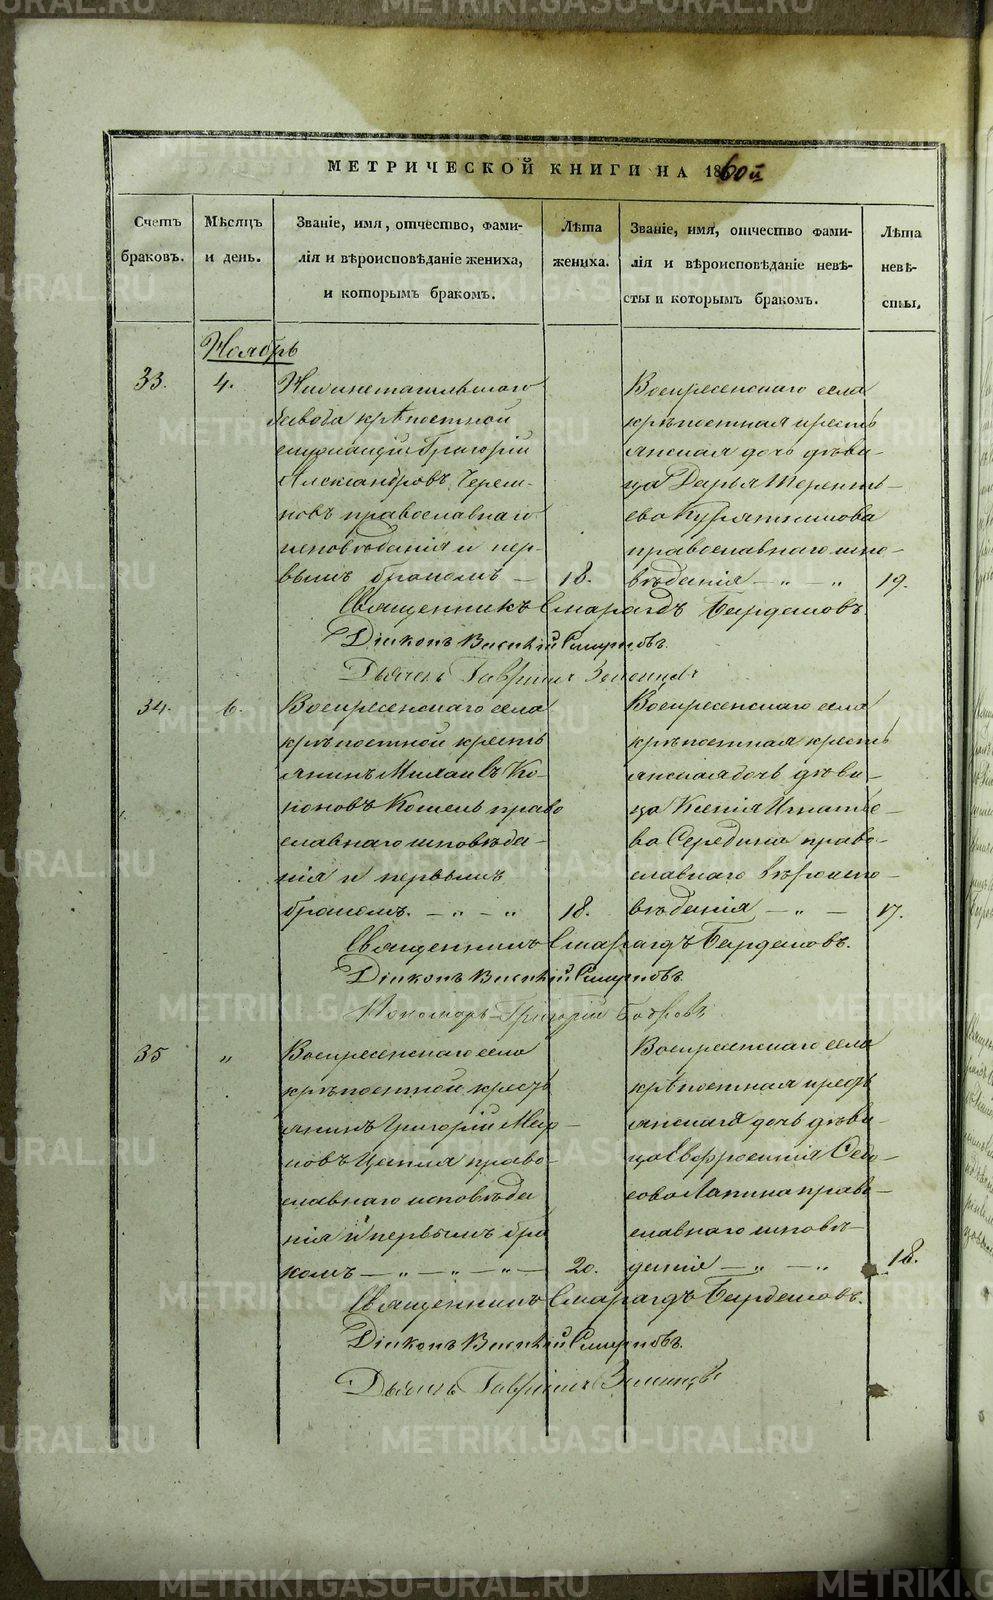 МЕТРИЧЕСКОЙ КНИГИ НА 1860й
Счетъ браковъ.
Мѣсяцъ и день.
Званіе, имя, отчество, фами-
лія и вѣроисповѣданіе жениха,
и которымъ бракомъ.
Лѣта жениха.
Званіе, имя, отчество фами-
лія и вѣроисповѣданіе невѣ-
сты и которымъ бракомъ.
Лѣта невѣ-
сты.
Ноябрь
33.
4.
Нижнетагильскаго
завода крѣпостной
служащій Григорій
Александровъ Черем-
новъ православнаго
исповѣданія и пер-
вымъ бракомъ —
18.
Воскресенскаго села
крѣпостная кресть
янская дочь дѣви-
ца Дарья Теренть-
ева
православнаго испо-
вѣданія — „ — „
19.
Священникъ Смарагдъ Бирдемовъ.
Діаконъ Василій Смирновъ.
Дьячекъ Гавріилъ
34.
6.
Воскресенскаго села
крѣпостной кресть
янинъ Михаилъ Ко-
ноновъ Кошель право
славнаго исповѣда-
нія и первымъ
бракомъ. — „ — „
18.
Воскресенскаго села
крѣпостная кресть
янская дочь дѣви-
ца Ксенія Игнатье-
ва Середкина право-
славнаго вѣроиспо-
вѣданія — „ —
17.
Священникъ Смарагдъ Бирдемовъ.
Діаконъ Василій Смирновъ.
Пономарь Григорій Бобровъ
35
„
Воскресенскаго села
крѣпостной кресть
янинъ Григорій Мар-
ковъ Цепиля право-
славнаго исповѣда
нія и первымъ бра
комъ — „ — „ — „ —
20.
Воскресенскаго села
крѣпостная кресть
янская дочь дѣви-
ца Евфросинія Седо-
сова Лапина право-
славнаго исповѣ-
данія — „ — „
18.
Священникъ Смарагдъ Бирдемовъ.
Діаконъ Василій Смирновъ.
Дьячекъ Гавріилъ
METRIKI.GASO-URAL.RU